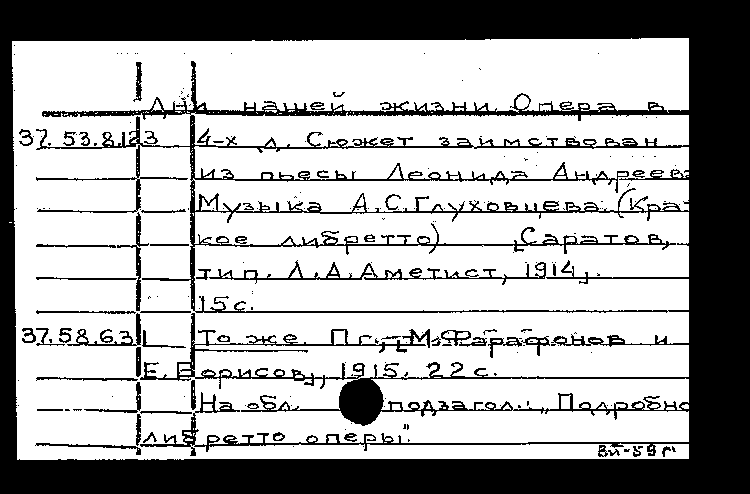 Дни нашей жизни. Опера в
37.53.8.123 4-х д. Сюжет заимствован
из пьесы Леонида Андреева
Музыка А.С.Глуховцева. (Крат
кое либретто). [Саратов,
тип. Л.А.Аметист, 1914].
15 с.
37.58.6.31 То же. Пг., [М.Фарафонов и
Е. Борисов], 1915. 22 с.
На обл. подзагол.: „Подробно
либретто оперы".
ВЙ-59 г